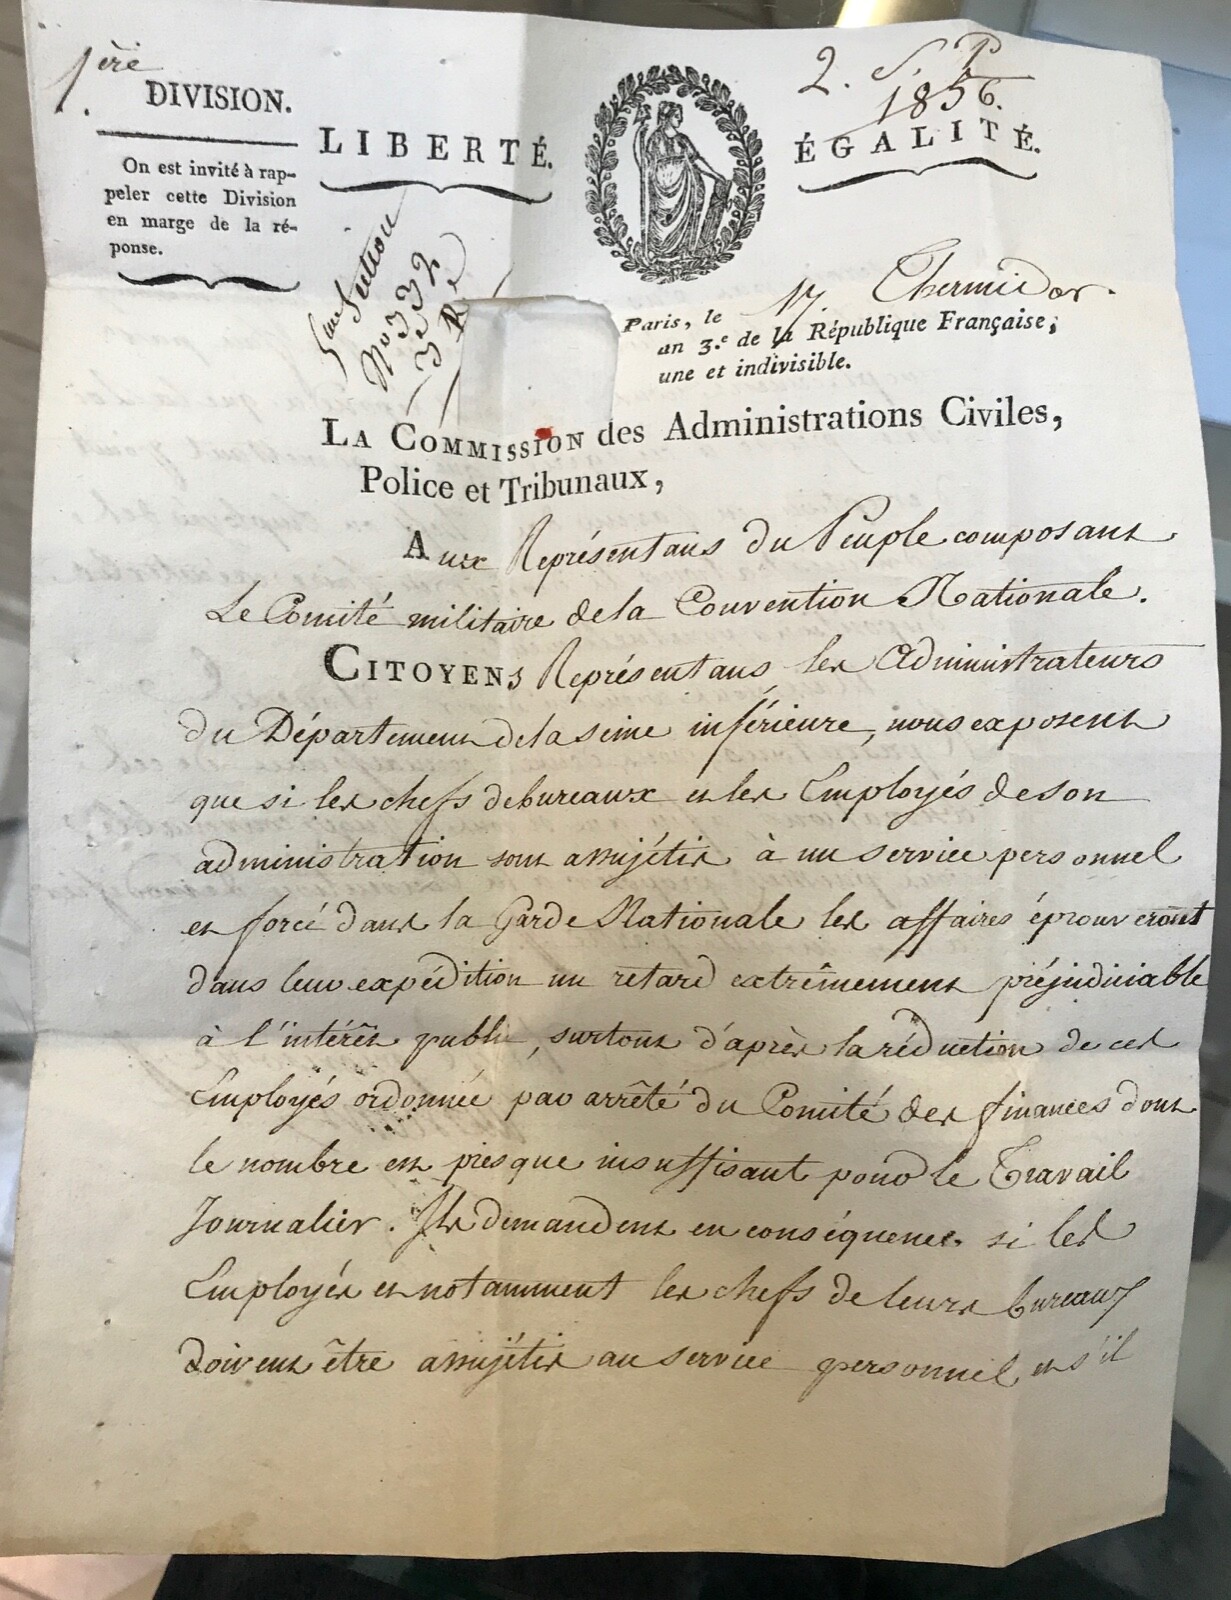 1.ère DIVISION.
On est invité à rap-
peler cette Division
en marge de la ré-
ponse.
LIBERTÉ.
ÉGALITÉ.
2. S. P
1856.
Section
No 332
3e Re
Paris, le 17. Thermidor.
an 3.e de la République Française,
une et indivisible.
LA COMMISSION des Administrations Civiles,
Police et Tribunaux,
Aux Représentans du Peuple composant
Le Comité militaire de la Convention Nationale.
CITOYENS Représentans, les Administrateurs
du Département de la seine inférieure, nous exposent
que si les chefs de bureaux et les Employés de son
administration sont assujétis à un service personnel
et forcé dans la Garde Nationale les affaires éprouveront
dans leur expédition un retard extrêmement préjudiciable
à l'intérêt public, surtout d'après la réduction de ces
Employés ordonnée par arrêté du Comité des finances dont
le nombre est presque insuffisant pour le Travail
Journalier. Ils demandent en conséquence si les
Employés et notamment les chefs de leurs bureaux
doivent être assujétis au service personnel et s'il